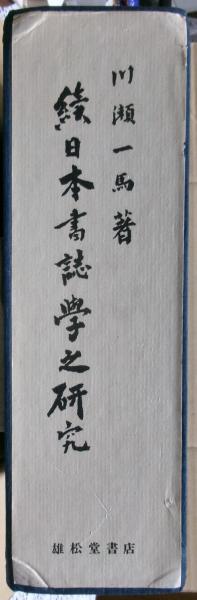 川瀬一馬著
續日本書誌學之研究
雄松堂書店